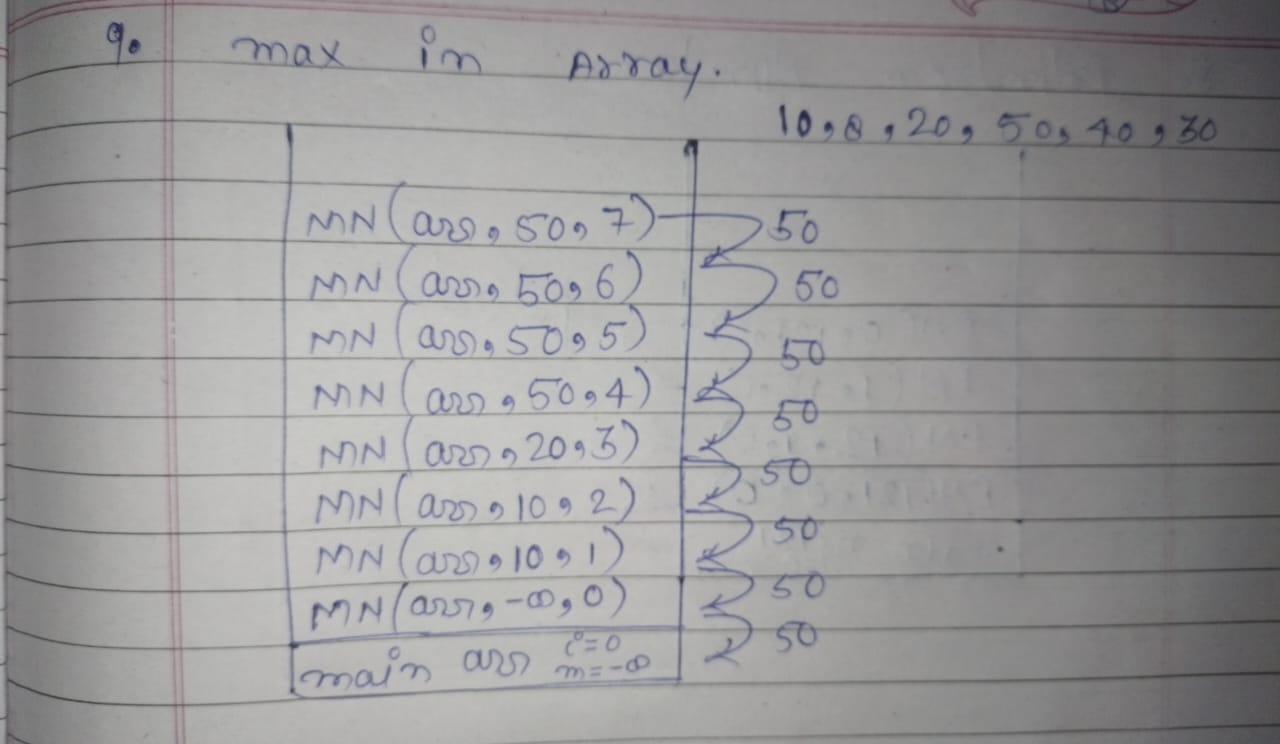 9. max in Array.
10, 8, 20, 50, 40, 30
MN(arr, 50, 7) 50
MN(arr, 50, 6) 50
MN(arr, 50, 5) 50
MN(arr, 50, 4) 50
MN(arr, 20, 3) 50
MN(arr, 10, 2) 50
MN(arr, 10, 1) 50
MN(arr, -∞, 0) 50
main arr i=0
m=-∞